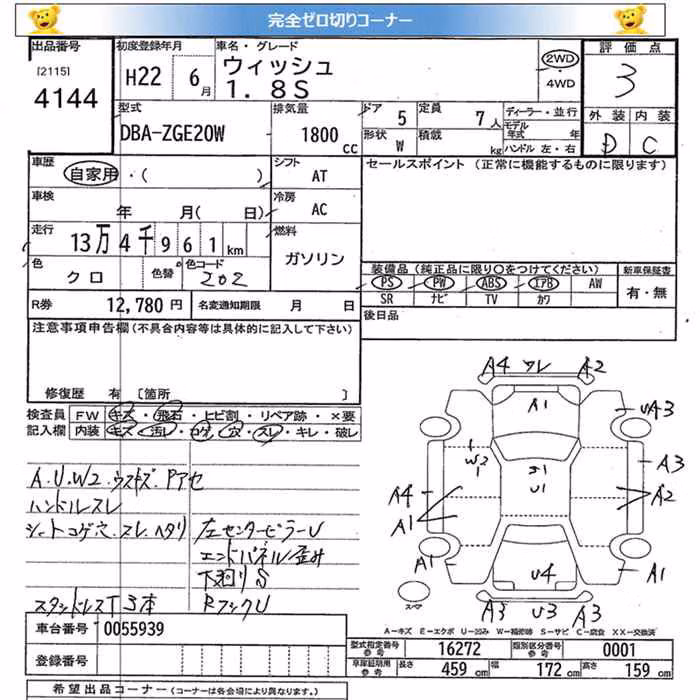 完全ゼロ切りコーナー
出品番号 初度登録年月 車名・グレード 評価点
[2115] H22 6月 ウィッシュ 2WD 3
4144 1.8S 4WD
外装 内装
型式 排気量 ドア 5 定員 7人 ディーラー・並行
DBA-ZGE20W 1800cc 形状 W 積載 kg モデル年式 年 D C
ハンドル 左・右
車歴 自家用・( ) シフト AT セールスポイント (正常に機能するものに限ります)
車検 年 月(日) 冷房 AC
走行 13万4千961km 燃料 ガソリン
色 クロ 色替 色コード 202
装備品(純正品に限り〇をつけてください) 新車保証書
PS PW ABS エアB AW 有・無
SR ナビ TV カワ
R券 12,780円 名変通知期限 月 日 後日品
注意事項申告欄(不具合内容等は具体的に記入して下さい)
修復歴 有 [箇所 ]
検査員 FW キズ・飛石・ヒビ割・リペア跡・×要
記入欄 内装 キズ・汚レ・コゲ・穴・スレ・キレ・破レ
A.U.W2.ウスキズ.Pアセ
ハンドルスレ
シートコゲ穴.スレ.ヘタリ 左センターピラーU
エンドパネル歪み
下廻りS
スタッドレスT3本 RフックU
A4 ワレ A2
A1 UA3
W2 S1 U1 A3
A4 A1 A2
A1 U4 A1
スペア A3 U3 A3
A-キズ E-エクボ U-凹み W-補修跡 S-サビ C-腐食 XX-交換済
車台番号 0055939 型式指定番号 参考 16272 類別区分番号 参考 0001
登録番号 車庫証明用 参考 長さ 459cm 幅 172cm 高さ 159cm
希望出品コーナー(コーナーは各会場により異なります。)